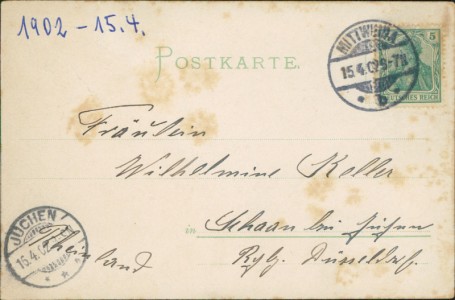 1902 - 15.4.
POSTKARTE.
MITTWEIDA
15.4.02 5-7N
b
5
DEUTSCHES REICH
Fräulein
Wilhelmine Keller
in Schaan bei Jüchen
Rheinland
Rgbz. Düsseldorf.
JÜCHEN
15.4.02